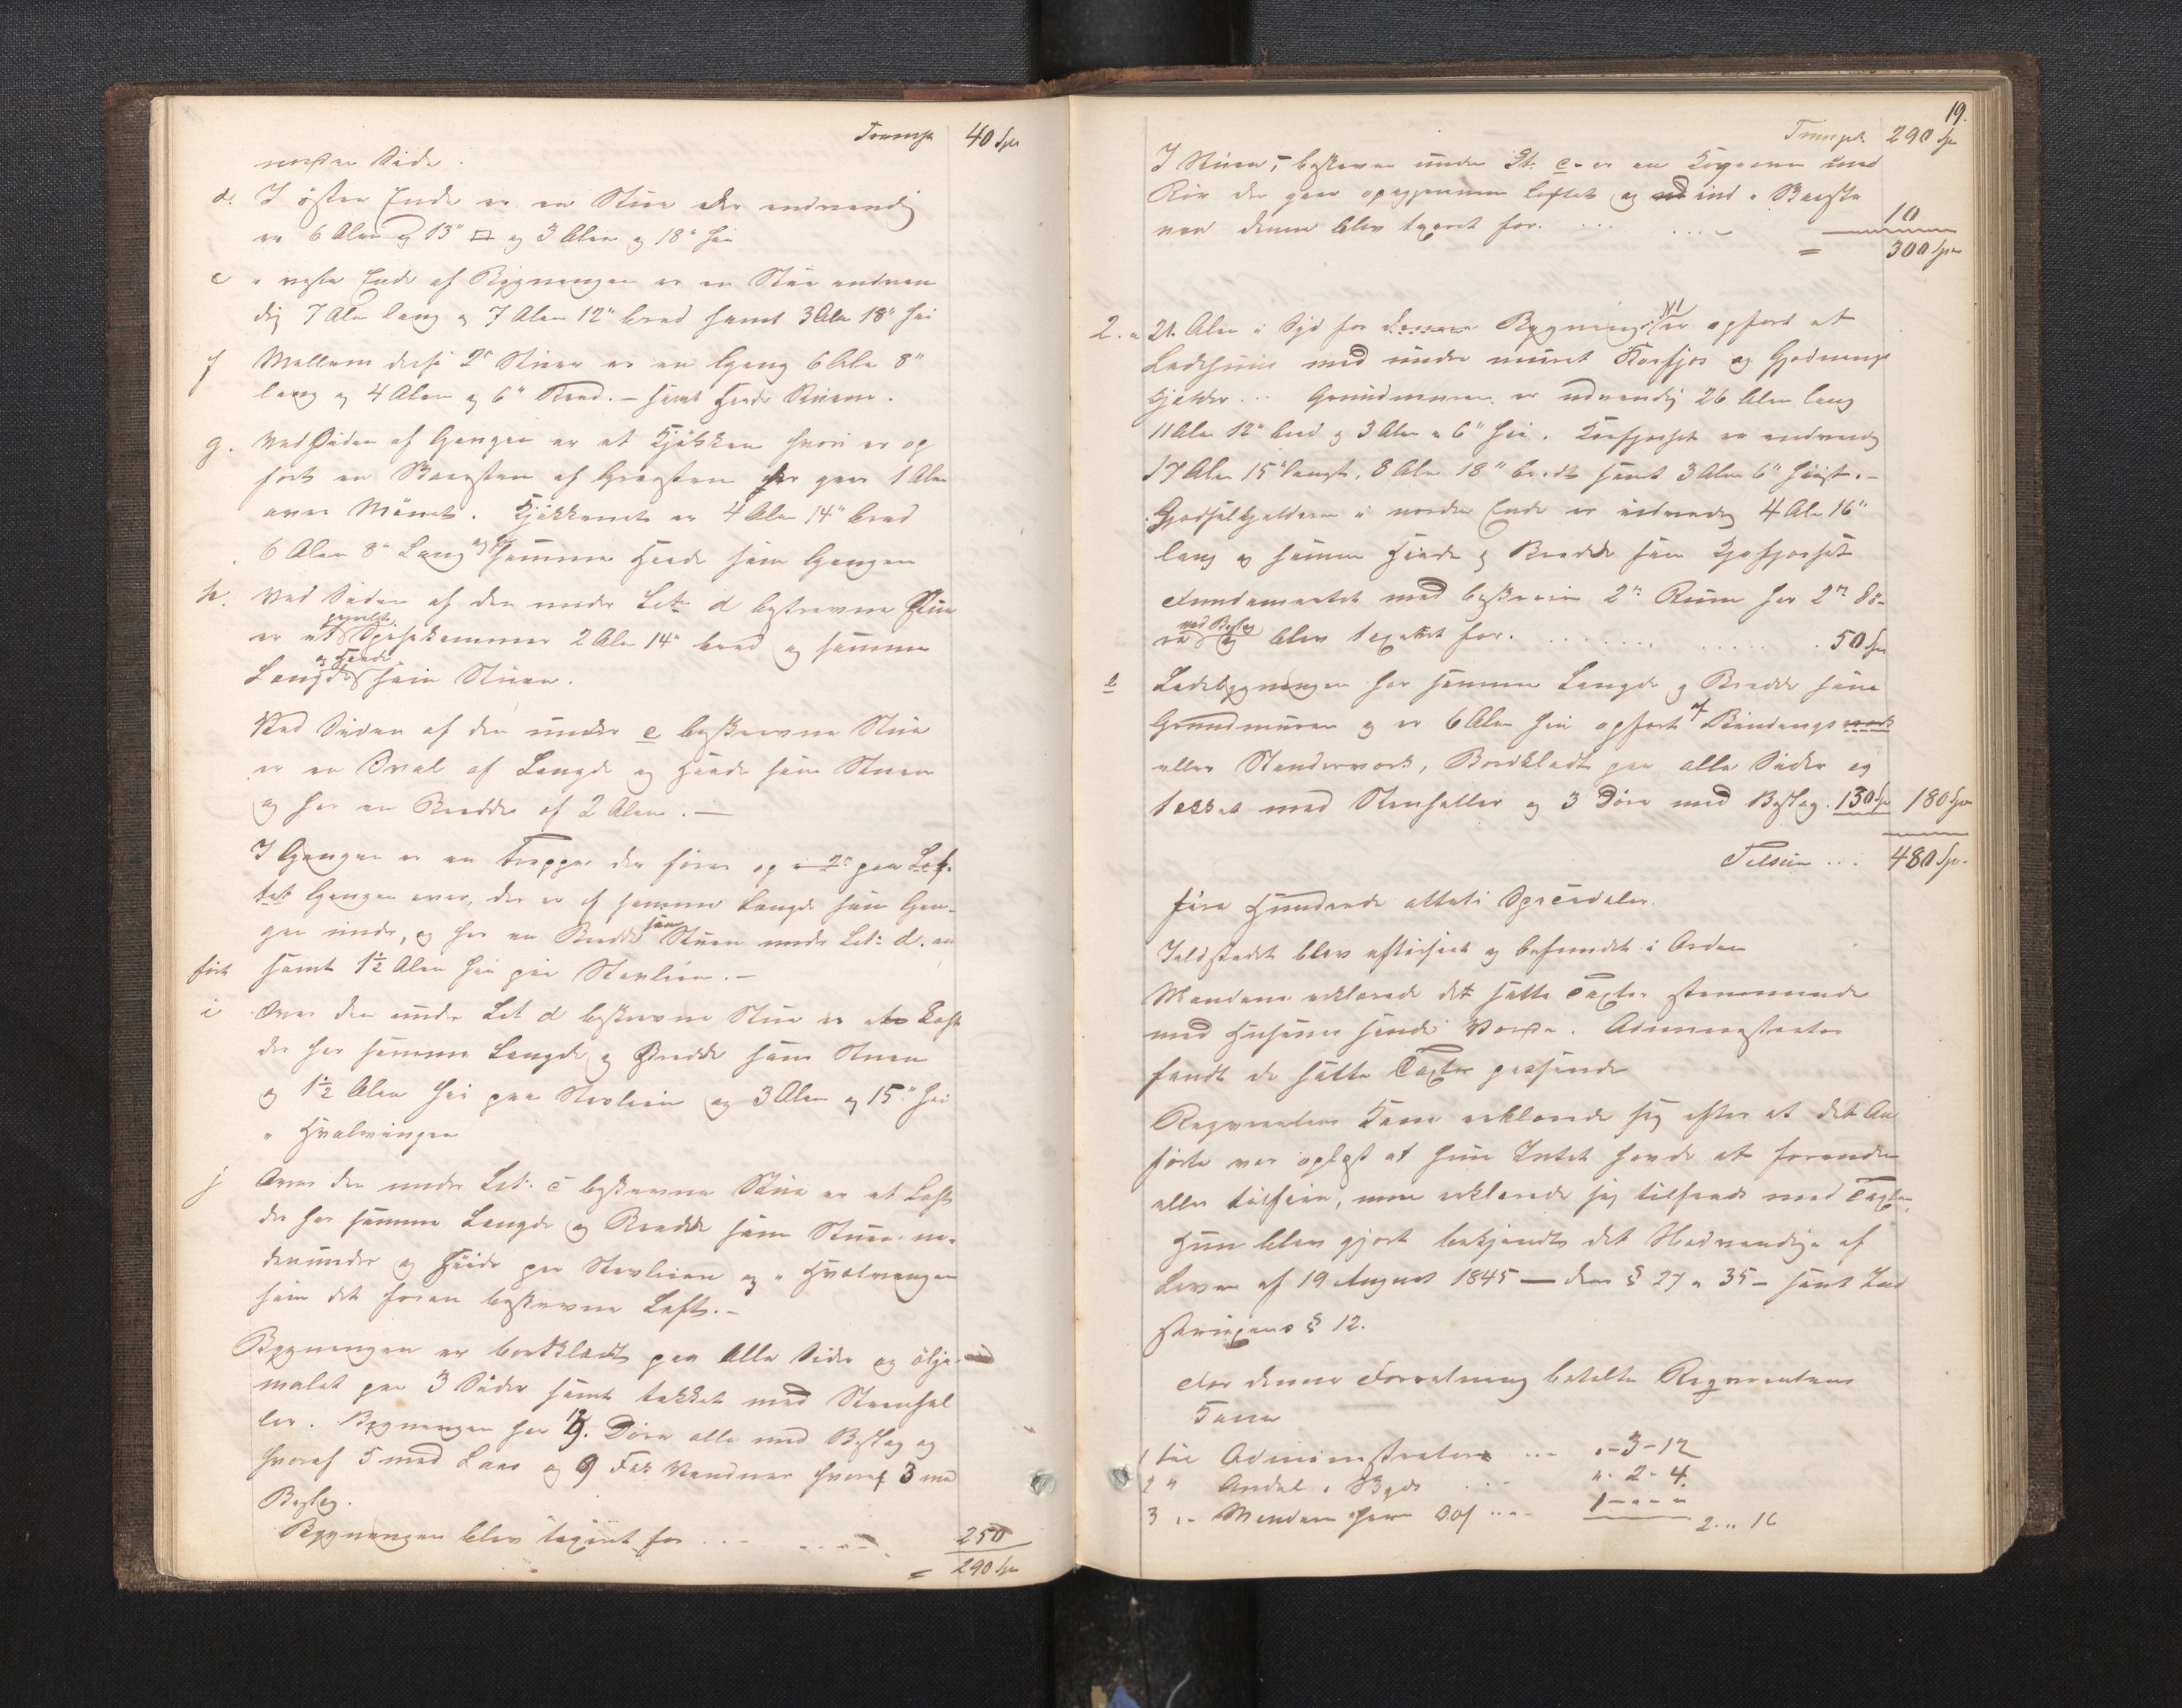 Transp. 40 Spd
nordre Side.
d. I östre Ende er en Stue der indvendig
er 6 Alen og 13" □ og 3 Alen og 18" höi
e i vestre Ende af Bygningen er en Stue indven
dig 7 Alen lang og 7 Alen 12" bred samt 3 Alen 18" höi
f Mellem disse 2de Stuer er en Gang 6 Alen 8"
lang og 4 Alen og 6" bred. – samt Höide Stuerne.
g. Ved Siden af Gangen er et Kjökken hvori er op
fört en Skorsten af Graasten der gaar 1 Alen
over Mönet. Kjökkenet er 4 Alen 14" bred
6 Alen 8" Lang og har samme Höide som Gangen
h. Ved Siden af den under Litr d beskrevne Stue
er et panelt Spisekammer 2 Alen 14" bred og samme
Længde og Höide som Stuen.
Ved Siden af den under e beskrevne Stue
er en Sval af Længde og Höide som Stuen
og har en Bredde af 2 Alen. –
I Gangen er en Trappe der förer op i 2den paa Lof-
tet Gangen over, der er af samme Længde som Gan-
gen under, og har en Bredde som Stuen under Lit: d. an
fört samt 1½ Alen höi paa Stavlien. –
i Over den under Lit d beskrevne Stue er et Loft
der har samme Længde og Bredde som Stuen
og 1½ Alen höi paa Stavlien og 3 Alen og 15" höi
i Hvælvingen
j Over den under Lit: e beskrevne Stue er et Loft
der har samme Længde og Bredde som Stuen ne-
denunder og Höide paa Stavlien og i Hvælvingen
som det foran beskrevne Loft. –
Bygningen er bordklædt paa alle Sider og olje-
malet paa 3 Sider samt tækket med Steenhel
ler. Bygningen har 12. Döre alle med Beslag og
hvoraf 5 med Laas og 9 Fag Vinduer hvoraf 3 med
Beslag.
Bygningen blev taxeret for . . – . . . – . 250
= 290 Spd
19.
Transpt. 290 Sp
I Stuen, beskreven under Lt. e – er en Kogeovn med
Rör der gaar opigjennem Loftet og ud ind i Skorste
nen denne blev taxeret for. . . . . . . . 10
= 300 Spd
2. a 21. Alen i Syd for denne Bygning N1 er opfört et
Ladehuus med under muret Koefjös og Gjödnings
kjelder . . . Grundmuren er udvendig 26 Alen lang
11 Alen 12" bred og 3 Alen a 6" höi. Koefjöset er indvendig
17 Alen 15" langt, 8 Alen 18" bredt samt 3 Alen 6" höit. –
Gjödselkjelderen i nordre Ende er indvendig 4 Alen 16"
lang og samme Höide og Bredde som Kofjöset
Fundamentet med beskrevne 2de Rum har 2de Dö-
re med Beslag og blev taxeret for. . . . . . . . . . . . 50 Spd
b Ladebygningen har samme Længde og Bredde som
Grundmuren og er 6 Alen höi opfört af Bindingsværk
eller Stenderværk, Bordklædt paa alle Sider og
tækket med Steenheller og 3 Döre med Beslag. 130 Sp 180 Spd
Tilsum . . . 480 Spd.
fire Hundrede otteti Speciedaler.
Ildstedet blev efterseet og befundet i Orden
Mændene erklærede det satte Taxter stemmende
med Husenes sande Værdi. Administrator
fandt de satte Taxter passende
Reqvirentens Kone erklærede sig efter at det An
förte var oplæst at hun Intet havde at forandre
eller tilföie, men erklærede sig tilfreds med Taxten.
Hun blev gjort bekjendt det Nödvendige af
Loven af 19 August 1845 – dens § 27 a 35 – samt In
struxens § 12.
For denne Forretning betalte Reqvirentens
Kone
1 til Administrator . . . „ – 3 – 12
2 „ Andel i Skyds . . . „ – 2 – 4
3 „ Mændene hver 40f . . . 1 – „ – „ 2 „ 16